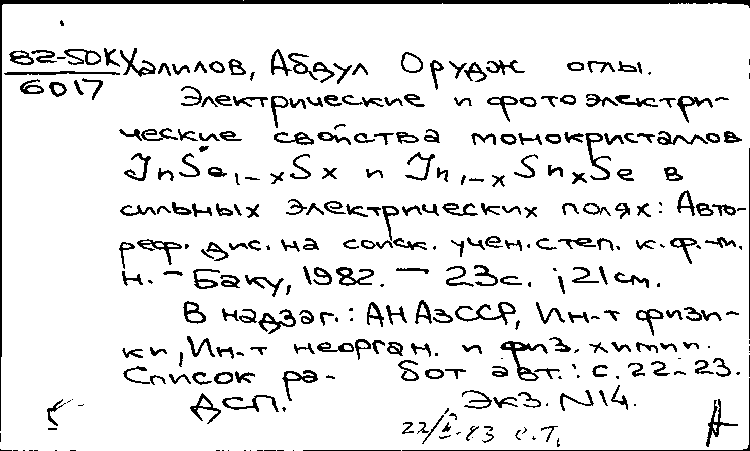 82-50К
6017
Халилов, Абдул Орудж оглы.
Электрические и фотоэлектри-
ческие свойства монокристаллов
InSe₁₋ₓSx и In₁₋ₓSnₓSe в
сильных электрических полях: Авто-
реф. дис. на соиск. учен. степ. к. ф.-м.
н. - Баку, 1982. - 23с. ; 21см.
В надзаг.: АН АзССР, Ин-т физи-
ки, Ин-т неорган. и физ. химии.
Список ра- бот авт.: с. 22-23.
ДСП. Экз. N14.
22/II-83 е.Т.
А